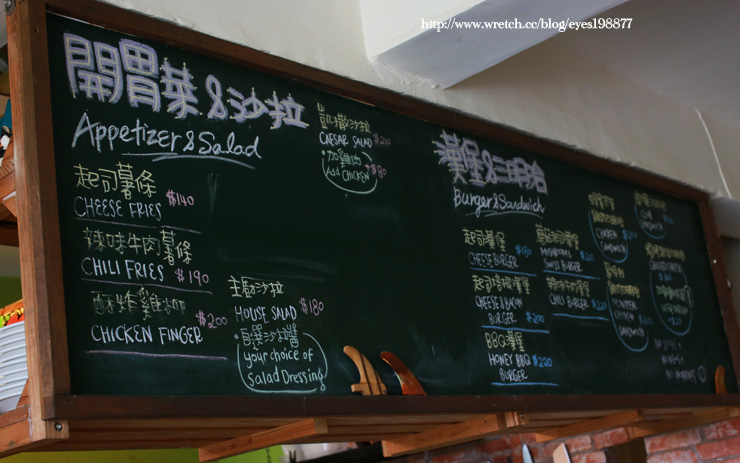 http://www.wretch.cc/blog/eyes198877
開胃菜&沙拉
Appetizer & Salad
起司薯條 $140
CHEESE FRIES
辣味牛肉薯條
CHILI FRIES $190
酥炸雞柳 $200
CHICKEN FINGER
凱撒沙拉
CAESAR SALAD $210
加雞肉
Add CHICKEN $80
主廚沙拉
HOUSE SALAD $180
自選沙拉醬
your choice of
Salad Dressing
漢堡&三明治
Burger & Sandwich
起司漢堡
CHEESE BURGER
起司培根漢堡
CHEESE & BACON
BURGER $200
BBQ漢堡
HONEY BBQ $220
BURGER
MUSHROOM
SWISS BURGER
CHILI BURGER
CHICKEN
SANDWICH
CHICKEN
SANDWICH
GRILLED CHEESE